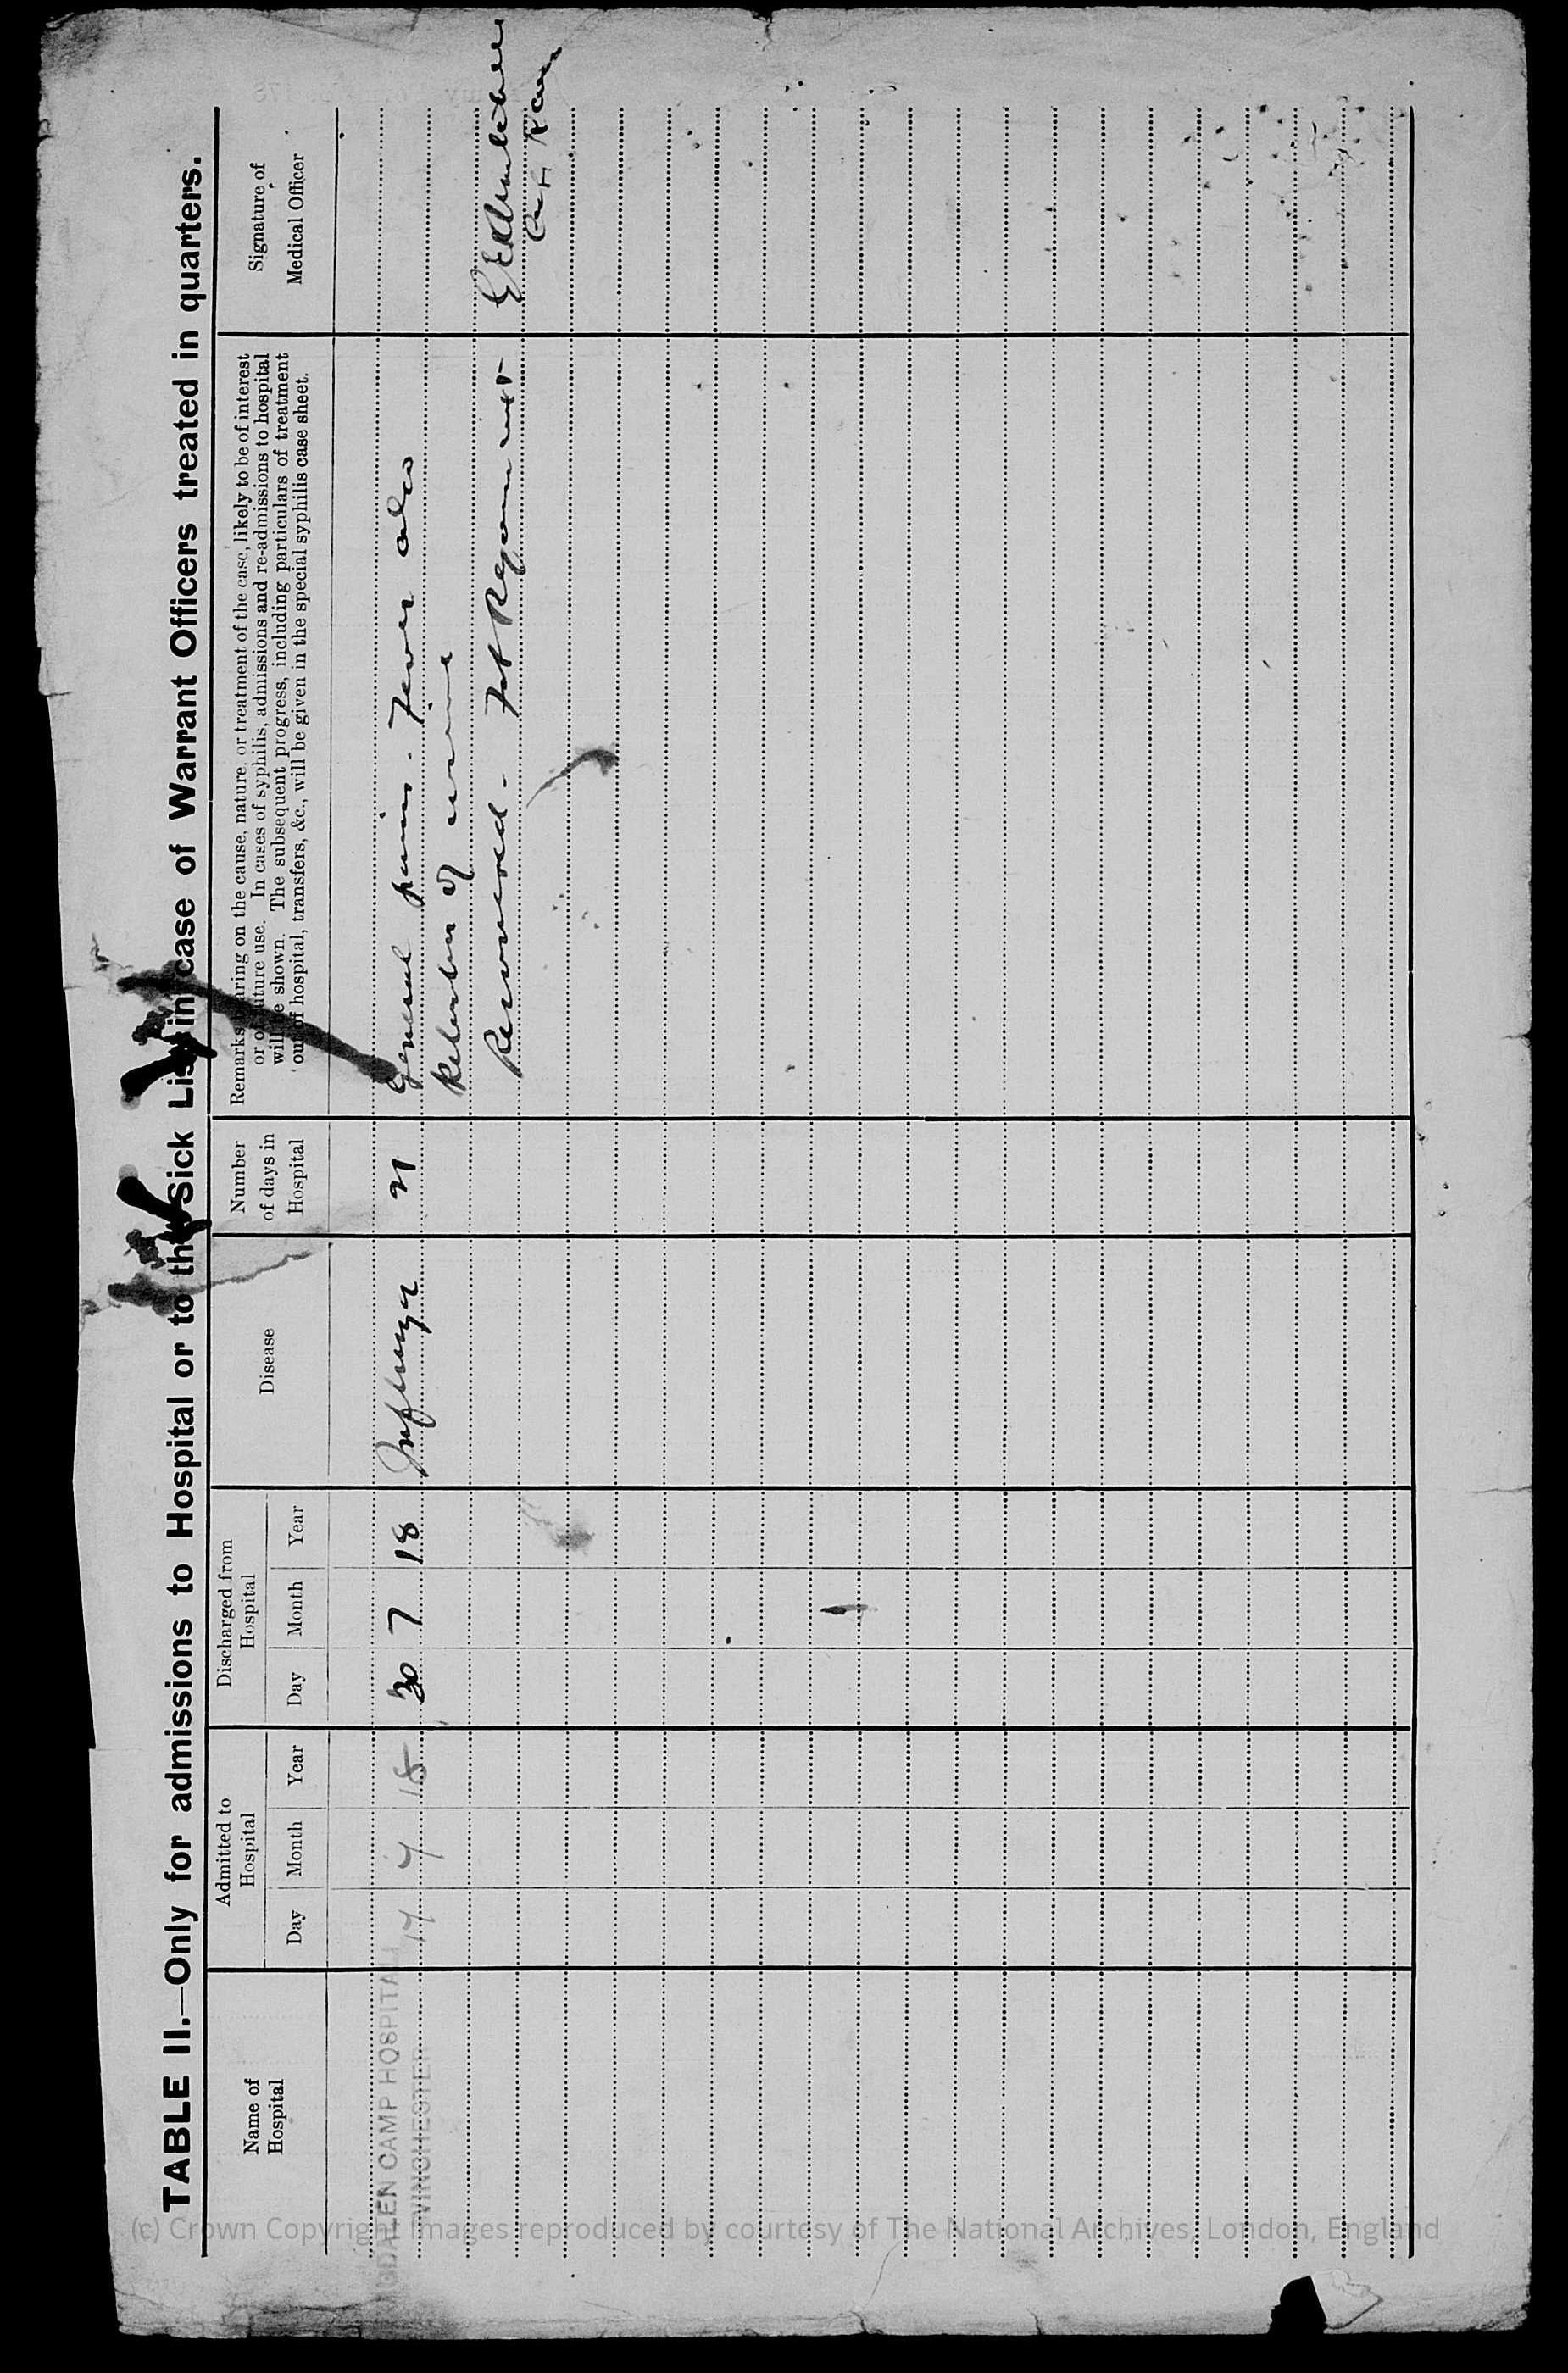 TABLE II.—Only for admissions to Hospital or to the Sick List in case of Warrant Officers treated in quarters.
Name of
Hospital
Admitted to
Hospital
Day Month Year
Discharged from
Hospital
Day Month Year
Disease
Number
of days in
Hospital
Remarks bearing on the cause, nature, or treatment of the case, likely to be of interest
or of future use. In cases of syphilis, admissions and re-admissions to hospital
will be shown. The subsequent progress, including particulars of treatment
out of hospital, transfers, &c., will be given in the special syphilis case sheet.
Signature of
Medical Officer
GDALEN CAMP HOSPITAL
WINCHESTER
7 18
30 7 18
Influenza
General pains. Fever also
of urine
Recovered. Fit Regiment
Capt
(c) Crown Copyright Images reproduced by courtesy of The National Archives, London, England